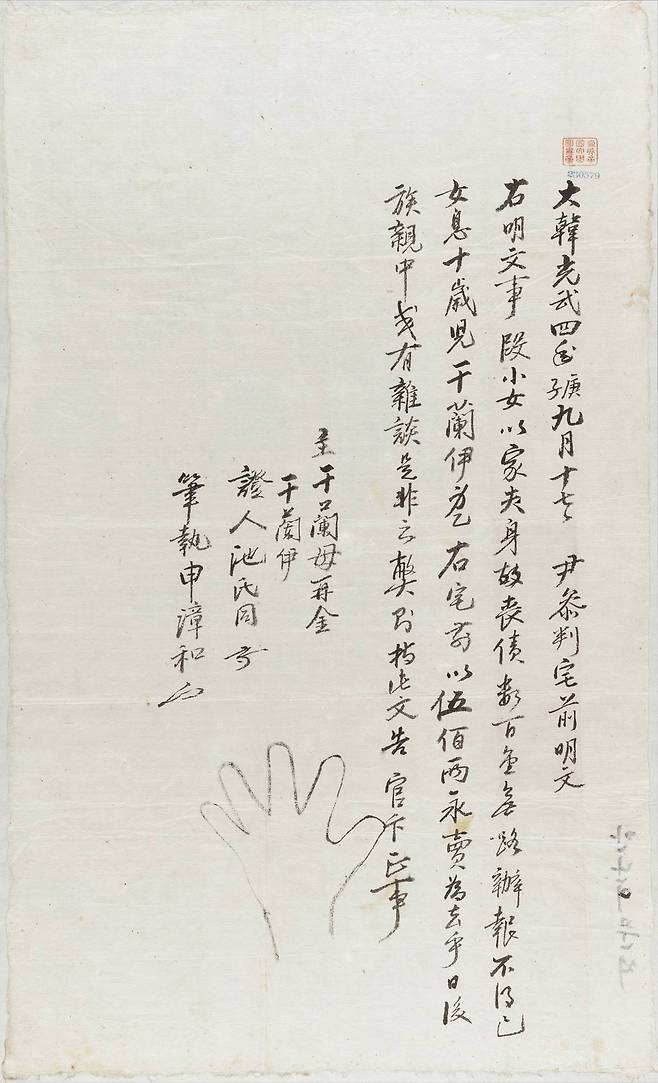 大韓光武四年庚子九月十七日 尹參判宅前明文
右明文事段小女以家夫身故喪債數百金無路辦報不得已
女息十歲児干蘭伊 右宅前以伍佰両永賣為去乎日後
族親中或有雜談是非之獘則持此文告 官卞正事
主干蘭母再金
干蘭伊
證人池氏同
筆執申漳和
230579